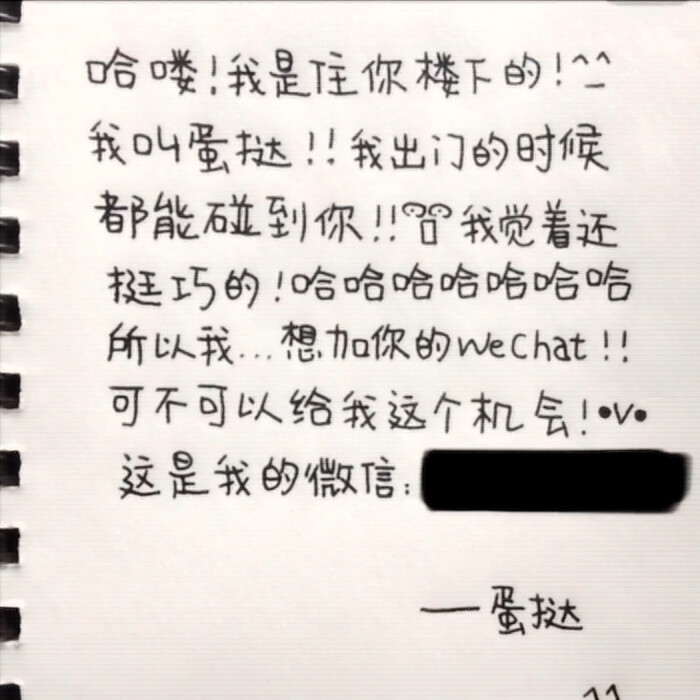 哈喽!我是住你楼下的!^_^
我叫蛋挞!!我出门的时候
都能碰到你!!我觉着还
挺巧的!哈哈哈哈哈哈哈
所以我...想加你的WeChat!!
可不可以给我这个机会!•v•
这是我的微信:
—蛋挞